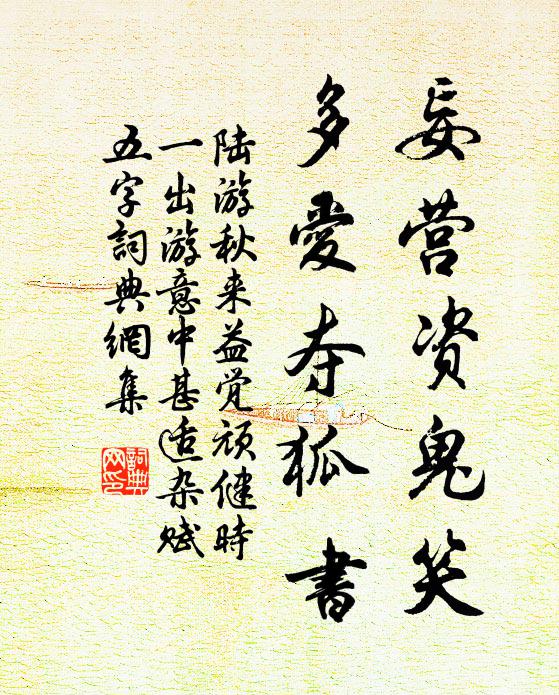 妄营资鬼笑
多愛夺狐書
陆游秋来益觉顽健時
一出游意中甚适杂赋
五字詞典網集
詞典
网印